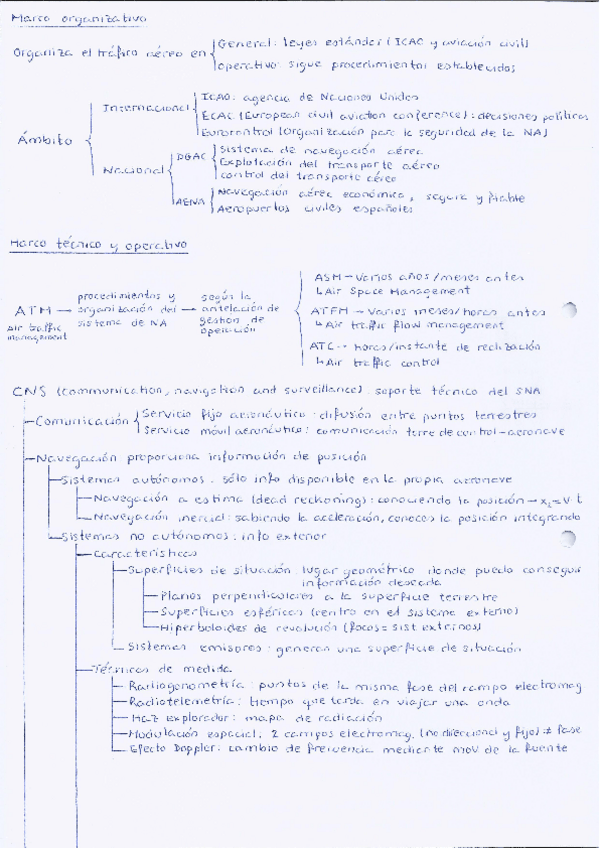 Marco organizativo
Organiza el tráfico aéreo en
General: leyes estándar (ICAO y aviación civil)
operativo: sigue procedimientos establecidos
Ámbito
Internacional
ICAO: agencia de Naciones Unidas
ECAC (European civil aviation conference): decisiones políticas
Eurocontrol (organización para la seguridad de la NA)
Nacional
DGAC
Sistema de navegación aérea
Explotación del transporte aéreo
control del transporte aéreo
AENA
Navegación aérea económica, segura y fiable
Aeropuertos civiles españoles
Marco técnico y operativo
ATM → procedimientos y organización del sistema de NA → según la antelación de gestión de operación
Air traffic management
ASM → varios años/meses antes
↳ Air Space Management
ATFM → varios meses/horas antes
↳ Air traffic flow management
ATC → horas/instante de realización
↳ Air traffic control
CNS (communication, navigation and surveillance): soporte técnico del SNA
Comunicación
Servicio fijo aeronáutico: difusión entre puntos terrestres
Servicio móvil aeronáutico: comunicación torre de control-aeronave
Navegación proporciona información de posición
Sistemas autónomos: sólo info disponible en la propia aeronave
Navegación a estima (dead reckoning): conociendo la posición →
Navegación inercial: sabiendo la aceleración, conoces la posición integrando
Sistemas no autónomos: info exterior
Características
Superficies de situación: lugar geométrico donde puedo conseguir
información deseada
Planos perpendiculares a la superficie terrestre
Superficies esféricas (centro en el sistema externo)
Hiperboloides de revolución (focos = sist externos)
Sistemas emisores: generan una superficie de situación
Técnicas de medida
Radiogonometría: puntos de la misma fase del campo electromag
Radiotelemetría: tiempo que tarda en viajar una onda
Haz explorador: mapa de radiación
Modulación espacial: 2 campos electromag. (no direccional y fijo) ≠ fase
Efecto Doppler: cambio de frecuencia mediante mov de la fuente